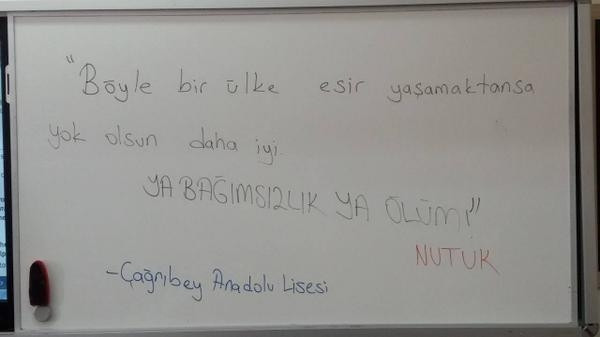 "Böyle bir ülke esir yaşamaktansa
yok olsun daha iyi.
YA BAĞIMSIZLIK YA ÖLÜM!"
NUTUK
-Çağrıbey Anadolu Lisesi